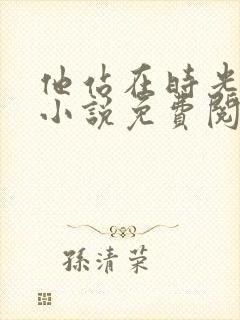 他佔在時光
小說免費閱
孫清荣